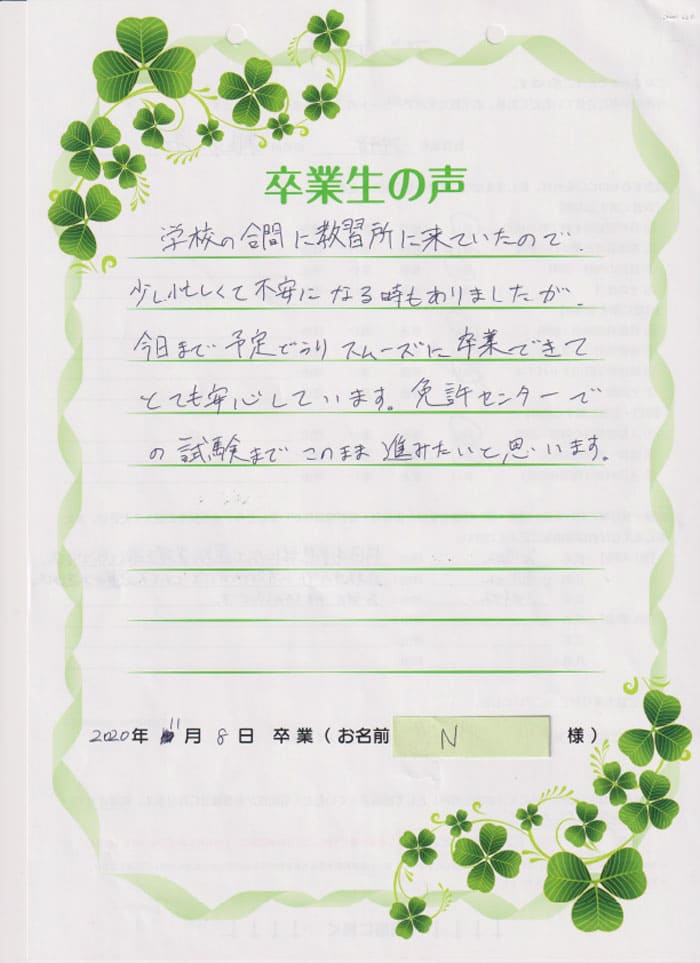 卒業生の声
学校の合間に教習所に来ていたので、
少し忙しくて不安になる時もありましたが、
今日まで予定どうり スムーズに卒業できて
とても安心しています。免許センターで
の試験まで このまま進みたいと思います。
2020年 11月 8日 卒業(お名前 N 様)